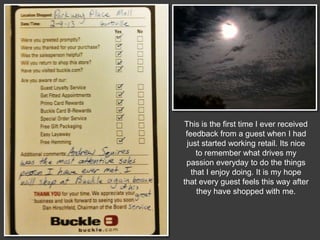 Location Shopped: Parkway Place Mall
Date/Time: 2-9-13 Huntsville
Yes No
Were you greeted promptly?
Were you thanked for your purchase?
Was the salesperson helpful?
Will you return to shop this store?
Have you visited buckle.com?
Are you aware of our:
Guest Loyalty Service
Get Fitted Appointments
Primo Card Rewards
Buckle Card B-Rewards
Special Order Service
Free Gift Packaging
Easy Layaway
Free Hemming
Additional comments: Andrew Squires
was the most attentive sales
person I have ever met. I
will shop at Buckle again because
of his
great
service
THANK YOU for your time. We appreciate your
business and look forward to seeing you soon.
Dan Hirschfeld, Chairman of the Board
Buckle
buckle.com
This is the first time I ever received
feedback from a guest when I had
just started working retail. Its nice
to remember what drives my
passion everyday to do the things
that I enjoy doing. It is my hope
that every guest feels this way after
they have shopped with me.